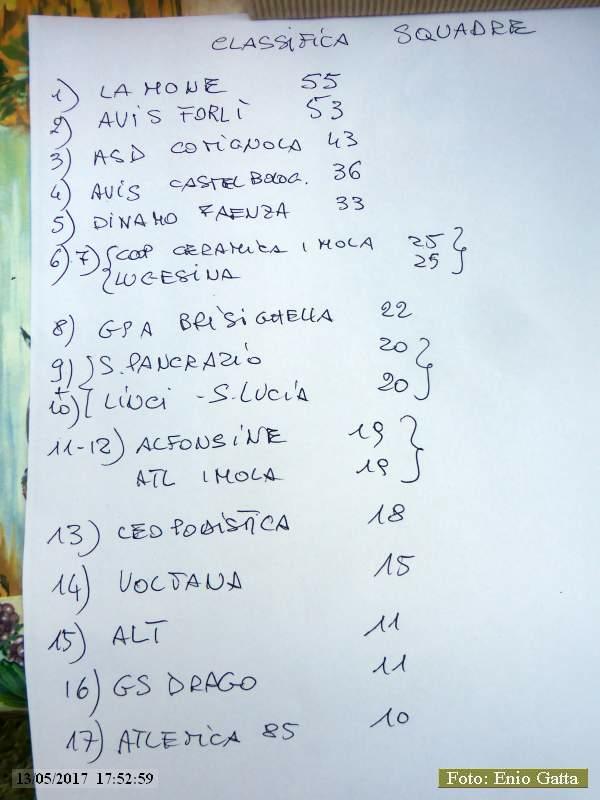 CLASSIFICA SQUADRE
1) LAMONE 55
2) AVIS FORLÌ 53
3) ASD COTIGNOLA 43
4) AVIS CASTELBOLOG. 36
5) DINAMO FAENZA 33
6) 7) { COOP CERAMICA IMOLA 25 }
{ LUGESINA 25 }
8) GPA BRISIGHELLA 22
9) } S. PANCRAZIO 20 }
+
10) { LINCI - S. LUCIA 20 }
11-12) ALFONSINE 19 }
ATL IMOLA 19 }
13) LEOPODISTICA 18
14) VOLTANA 15
15) ALT 11
16) GS DRAGO 11
17) ATLETICA 85 10
13/05/2017 17:52:59
Foto: Enio Gatta